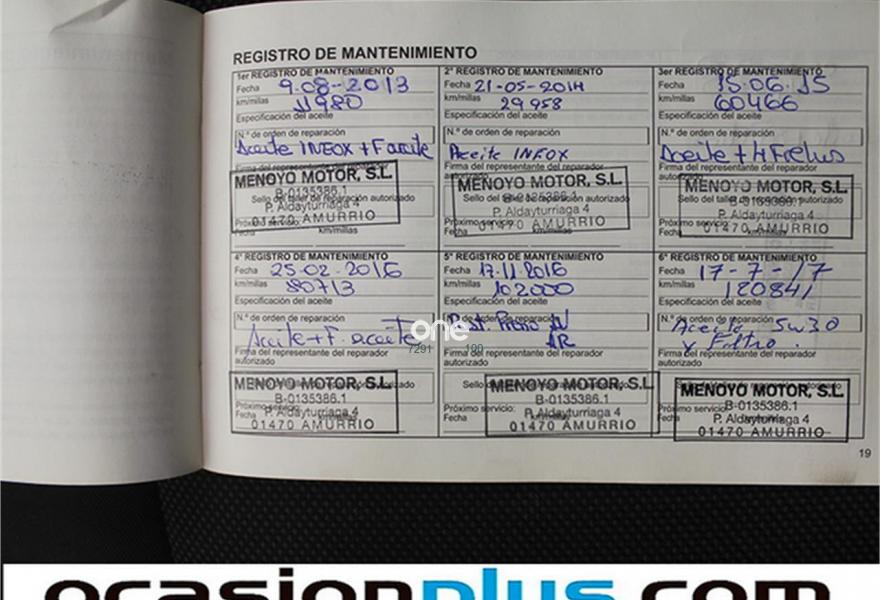 REGISTRO DE MANTENIMIENTO
1er REGISTRO DE MANTENIMIENTO
Fecha 9-08-2013
km/millas 11980
Especificación del aceite
N.º de orden de reparación
Aceite INEOX + F aceite
Firma del representante del reparador
autorizado
MENOYO MOTOR, S.L.
Sello del taller de reparación autorizado
B-0135386.1
P. Aldayturriaga 4
Próximo servicio:
01470 AMURRIO
Fecha km/millas
2º REGISTRO DE MANTENIMIENTO
Fecha 21-05-2014
km/millas 29958
Especificación del aceite
N.º de orden de reparación
Aceite INEOX
Firma del representante del reparador
autorizado
MENOYO MOTOR, S.L.
Sello del taller de reparación autorizado
B-0135386.1
P. Aldayturriaga 4
Próximo servicio:
01470 AMURRIO
Fecha km/millas
3er REGISTRO DE MANTENIMIENTO
Fecha 15.06.15
km/millas 60466
Especificación del aceite
N.º de orden de reparación
Aceite + 4 Filtros
Firma del representante del reparador
autorizado
MENOYO MOTOR, S.L.
Sello del taller de reparación autorizado
B-0135386.1
P. Aldayturriaga 4
Próximo servicio:
01470 AMURRIO
Fecha km/millas
4º REGISTRO DE MANTENIMIENTO
Fecha 25-02-2016
km/millas 80713
Especificación del aceite
N.º de orden de reparación
Aceite + F. aceite
Firma del representante del reparador
autorizado
MENOYO MOTOR, S.L.
B-0135386.1
Próximo servicio:
P. Aldayturriaga 4
Fecha
01470 AMURRIO
5º REGISTRO DE MANTENIMIENTO
Fecha 17.11.2016
km/millas 102000
Especificación del aceite
N.º de orden de reparación
Firma del representante del reparador
autorizado
MENOYO MOTOR, S.L.
B-0135386.1
Próximo servicio:
P. Aldayturriaga 4
Fecha km/millas
01470 AMURRIO
6º REGISTRO DE MANTENIMIENTO
Fecha 17-7-17
km/millas 120841
Especificación del aceite
N.º de orden de reparación
Aceite 5w30
y Filtro.
Firma del representante del reparador
autorizado
MENOYO MOTOR, S.L.
B-0135386.1
Próximo servicio:
P. Aldayturriaga 4
Fecha
01470 AMURRIO
one
7291 100
19
ocasionplus.com